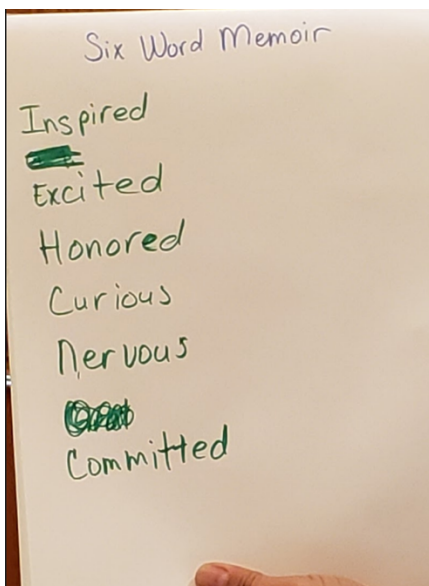 Six Word Memoir
Inspired
Excited
Honored
Curious
Nervous
Committed